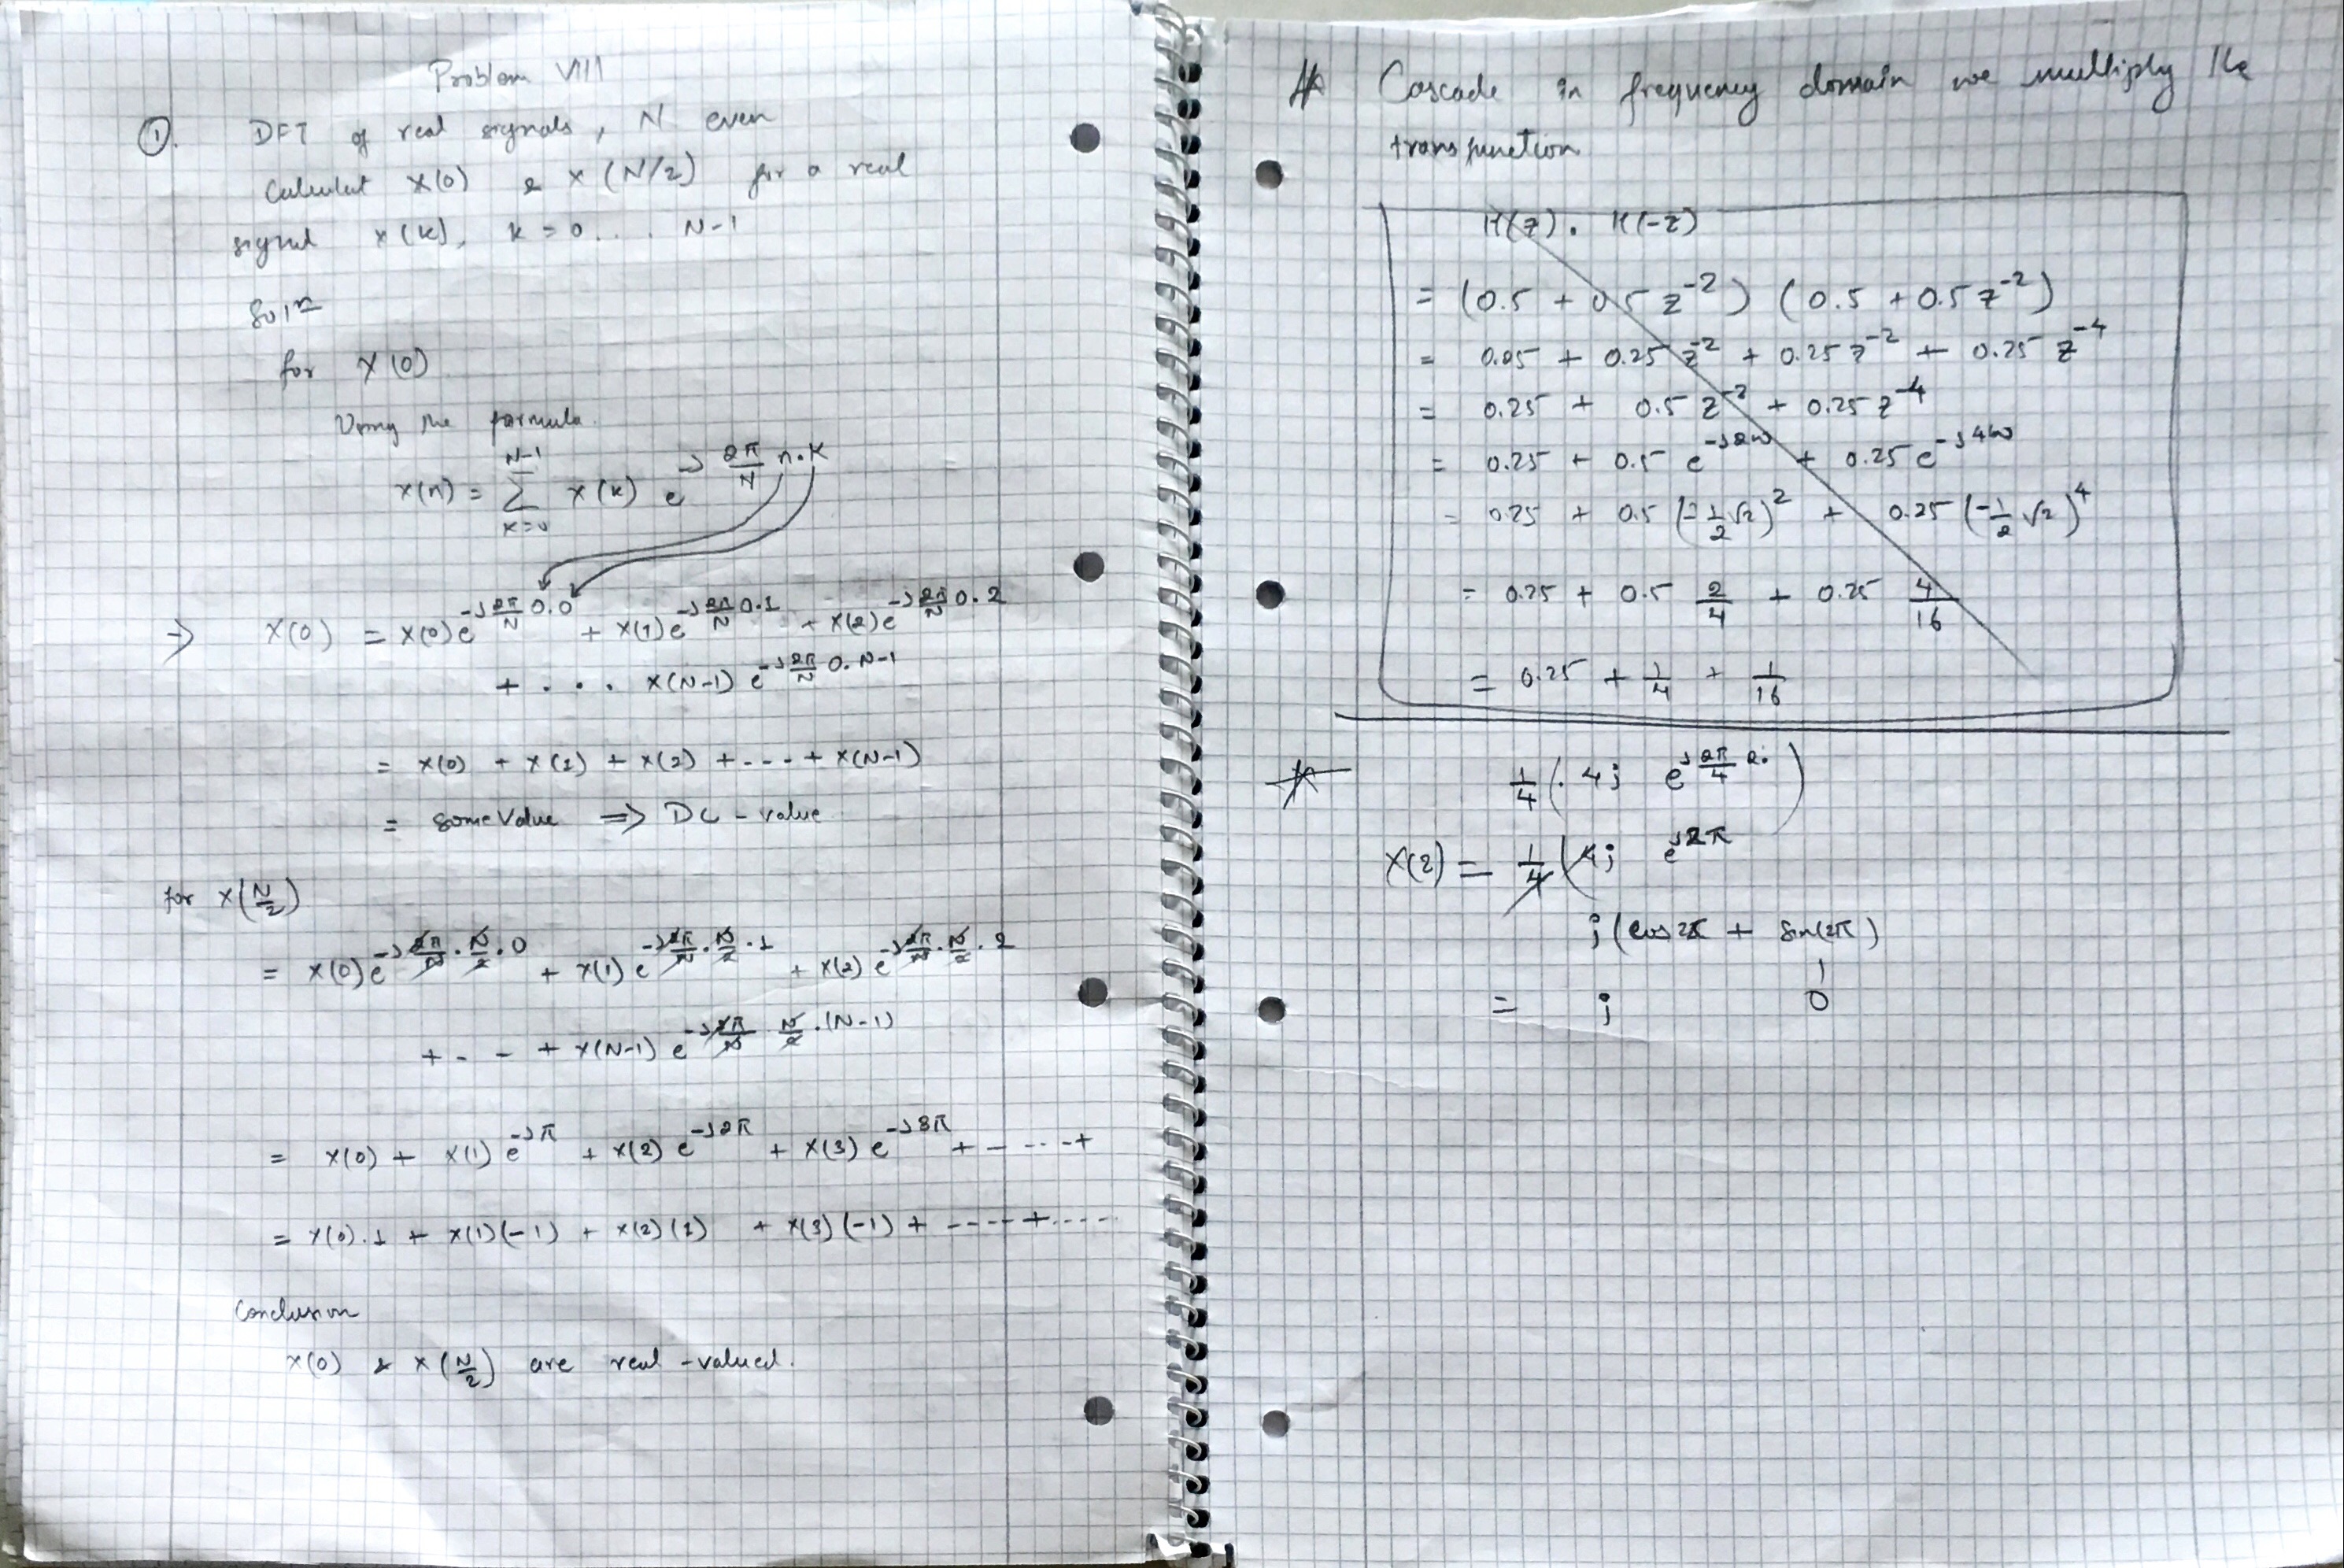 Problem VIII
①. DFT of real signals, N even
Calculat X(0) & X(N/2) for a real
signal x[k], k = 0 . . . N-1
Solⁿ
for X(0)
Using the formula.
X(n) = Σ_{k=0}^{N-1} x(k) e^{-j 2π/N n.k}
⇒ X(0) = x(0)e^{-j 2π/N 0.0} + x(1)e^{-j 2π/N 0.1} + x(2)e^{-j 2π/N 0.2}
+ . . . x(N-1) e^{-j 2π/N 0.N-1}
= x(0) + x(1) + x(2) + - - - + x(N-1)
= some value ⇒ DC - value
for X(N/2)
= x(0)e^{-j 2π/N . N/2 . 0} + x(1)e^{-j 2π/N . N/2 . 1} + x(2)e^{-j 2π/N . N/2 . 2}
+ - - + x(N-1) e^{-j 2π/N N/2 .(N-1)}
= x(0) + x(1) e^{-jπ} + x(2) e^{-j2π} + x(3) e^{-j3π} + - - - - +
= x(0).1 + x(1)(-1) + x(2)(1) + x(3)(-1) + - - - - + - - - -
Conclusion
X(0) & X(N/2) are real-valued.
Cascade in frequency domain we multiply the
transfunction
H(z) . H(-z)
= (0.5 + 0.5 z^{-2}) (0.5 + 0.5 z^{-2})
= 0.25 + 0.25 z^{-2} + 0.25 z^{-2} + 0.25 z^{-4}
= 0.25 + 0.5 z^{-2} + 0.25 z^{-4}
= 0.25 + 0.5 e^{-j2ω} + 0.25 e^{-j4ω}
= 0.25 + 0.5 (-1/2 √2)^2 + 0.25 (-1/2 √2)^4
= 0.25 + 0.5 2/4 + 0.25 4/16
= 0.25 + 1/4 + 1/16
1/4 (. 4j e^{j 2π/4 2.})
X(2) = 1/4 (4j e^{j2π}
j (cos 2π + sin(2π)
= j 0